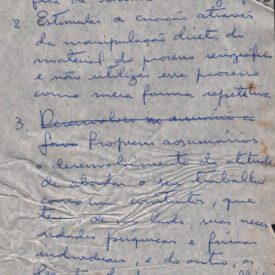 2. Estimular a criação através
da manipulação direta do
material do processo xerográfico
e não utilizar esse processo
como mera forma repetitiva
3. Desenvolver no usuário a
Propiciar aos usuários
o desenvolvimento da atitude
de abordar o seu trabalho
como um construtor, que
tem de um lado, suas neces
sidades psíquicas e físicas
individuais, e do outro, os